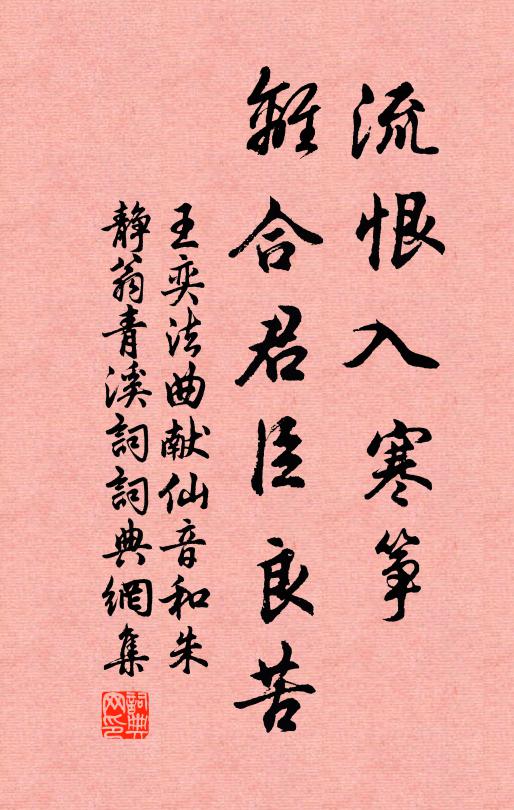 流恨入寒筝
離合君臣良苦
王奕法曲献仙音和朱
静翁青溪詞詞典網集
詞典网印